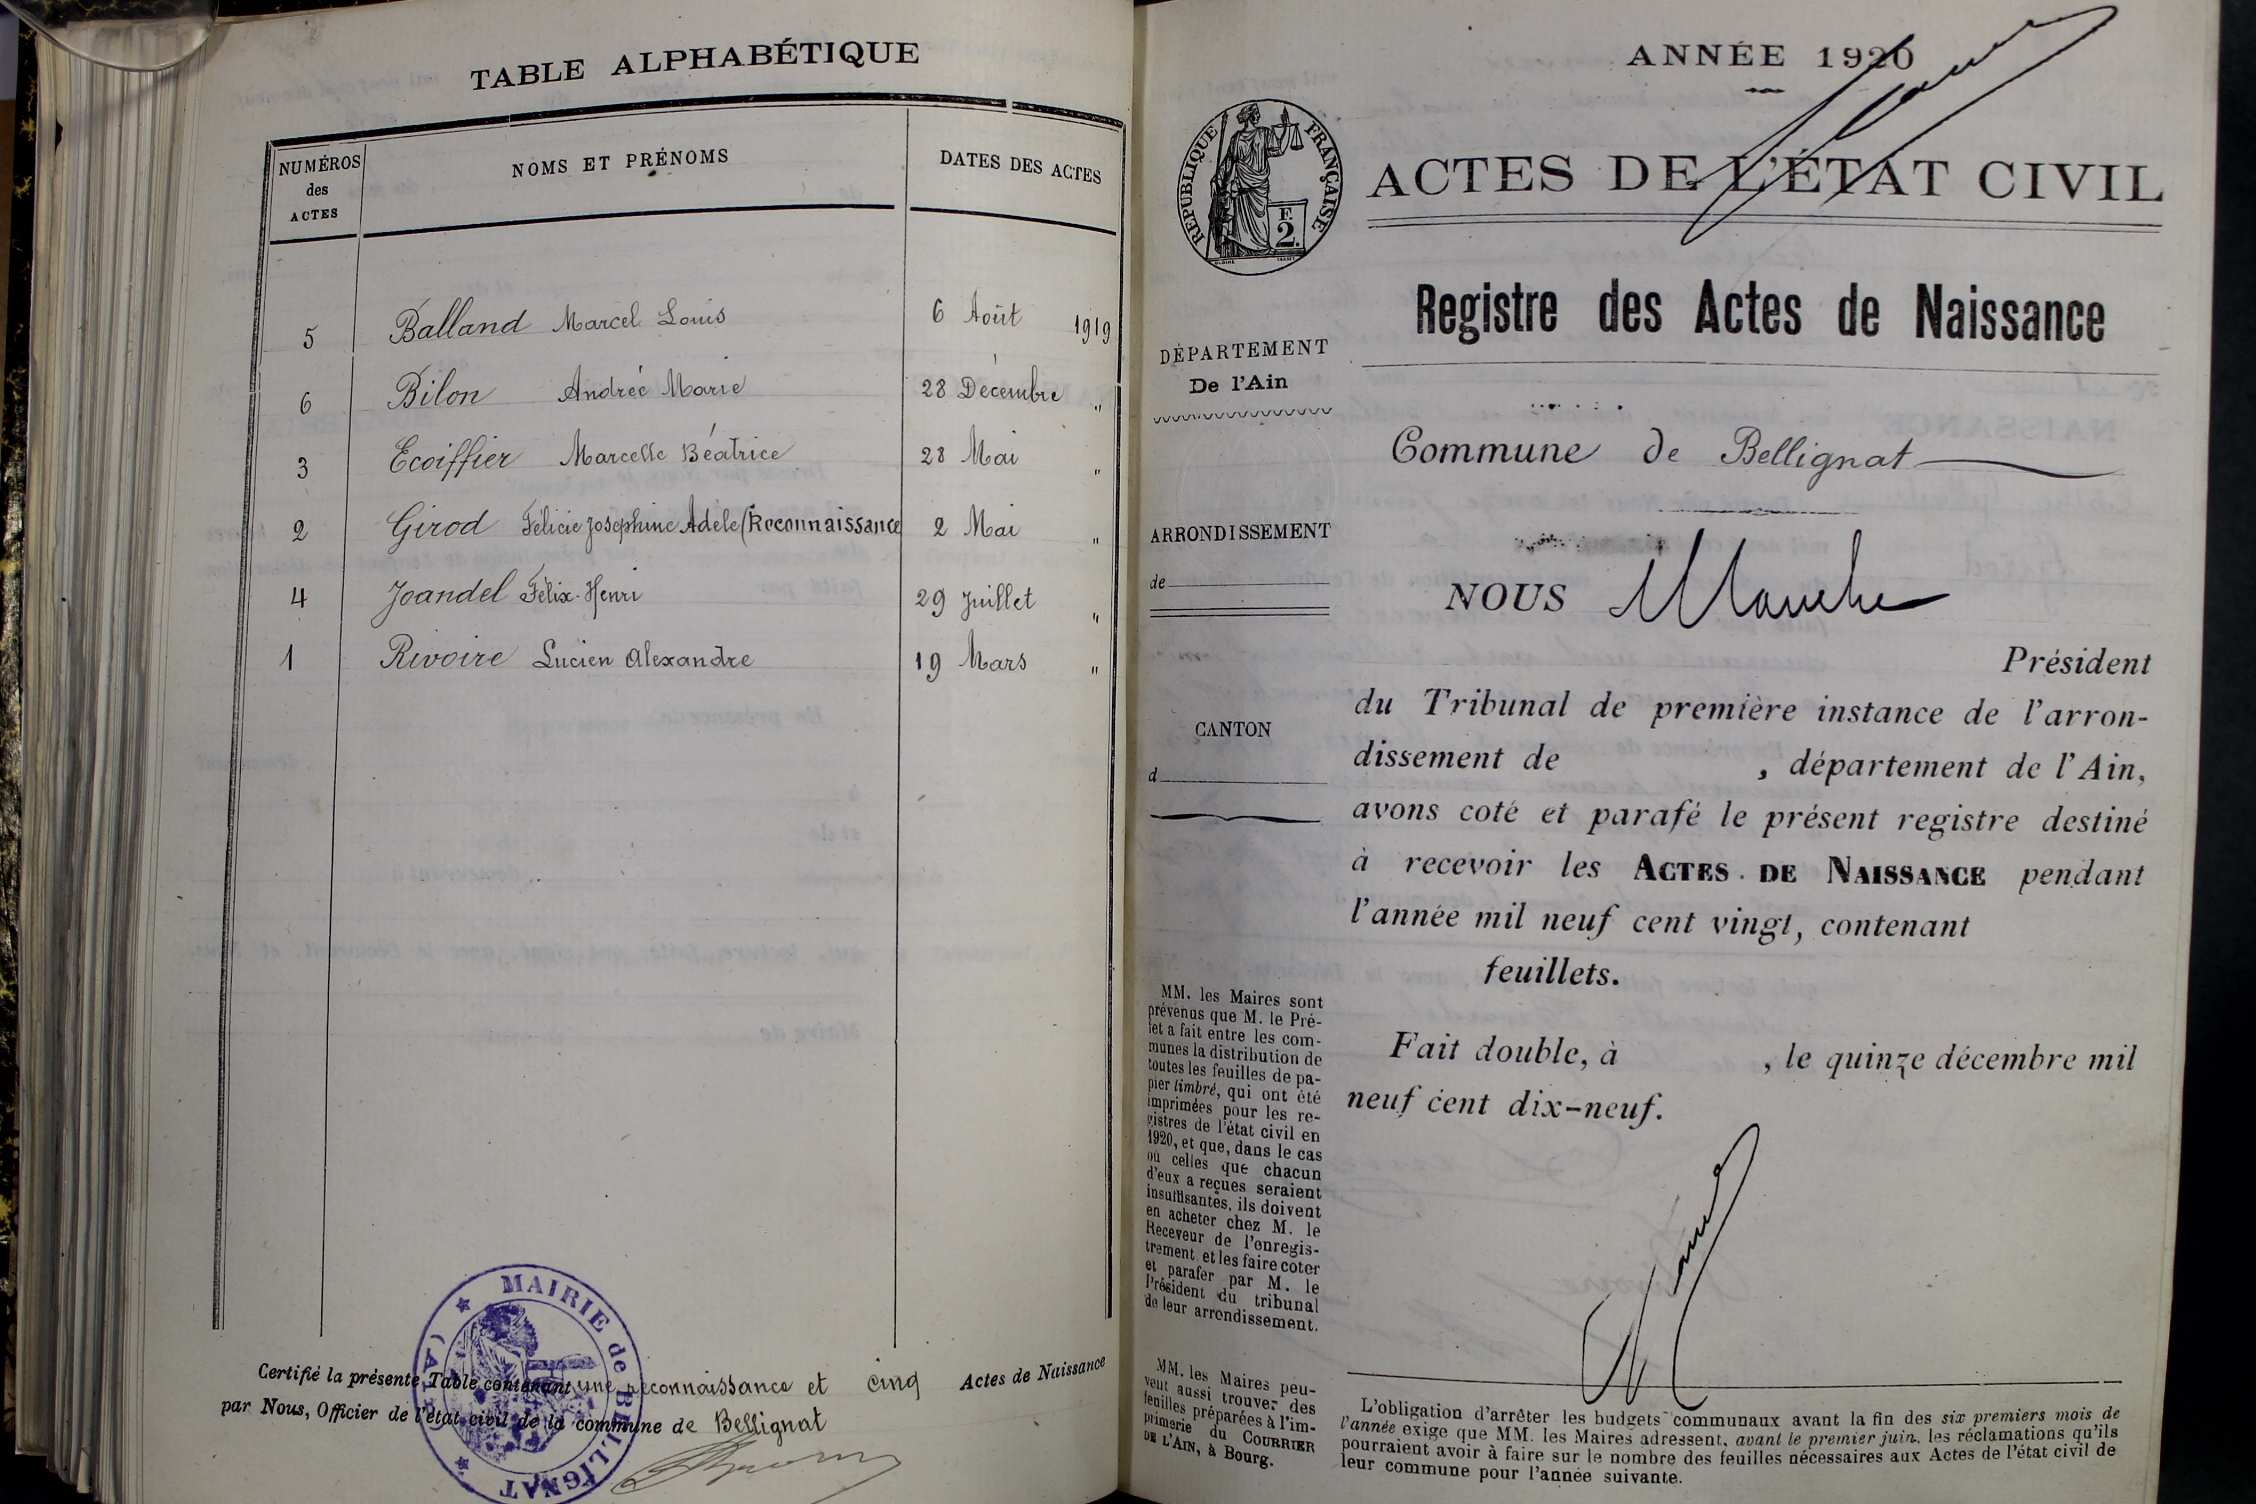 TABLE ALPHABÉTIQUE
NUMÉROS des ACTES
NOMS ET PRÉNOMS
DATES DES ACTES
5 Balland Marcel Louis 6 Août 1919
6 Bilon Andrée Marie 28 Décembre "
3 Ecoiffier Marcelle Béatrice 28 Mai "
2 Girod Félicie Josephine Adèle (Reconnaissance 2 Mai "
4 Joandel Félix-Henri 29 Juillet "
1 Rivoire Lucien Alexandre 19 Mars "
Certifié la présente Table contenant une reconnaissance et cinq Actes de Naissance
par Nous, Officier de l'état civil de la commune de Bellignat
MAIRIE de BELLIGNAT (AIN)
ANNÉE 1920
RÉPUBLIQUE FRANÇAISE
F.
2.
ACTES DE L'ÉTAT CIVIL
Registre des Actes de Naissance
DÉPARTEMENT
De l'Ain
Commune de Bellignat
ARRONDISSEMENT
de
NOUS
Président
du Tribunal de première instance de l'arron-
dissement de , département de l'Ain,
avons coté et parafé le présent registre destiné
à recevoir les ACTES DE NAISSANCE pendant
l'année mil neuf cent vingt, contenant
feuillets.
Fait double, à , le quinze décembre mil
neuf cent dix-neuf.
CANTON
d
MM. les Maires sont
prévenus que M. le Pré-
fet a fait entre les com-
munes la distribution de
toutes les feuilles de pa-
pier timbré, qui ont été
imprimées pour les re-
gistres de l'état civil en
1920, et que, dans le cas
où celles que chacun
d'eux a reçues seraient
insuffisantes, ils doivent
en acheter chez M. le
Receveur de l'enregis-
trement et les faire coter
et parafer par M. le
Président du tribunal
de leur arrondissement.
MM. les Maires peu-
vent aussi trouver des
feuilles préparées à l'im-
primerie du COURRIER
DE L'AIN, à Bourg.
L'obligation d'arrêter les budgets communaux avant la fin des six premiers mois de
l'année exige que MM. les Maires adressent, avant le premier juin, les réclamations qu'ils
pourraient avoir à faire sur le nombre des feuilles nécessaires aux Actes de l'état civil de
leur commune pour l'année suivante.